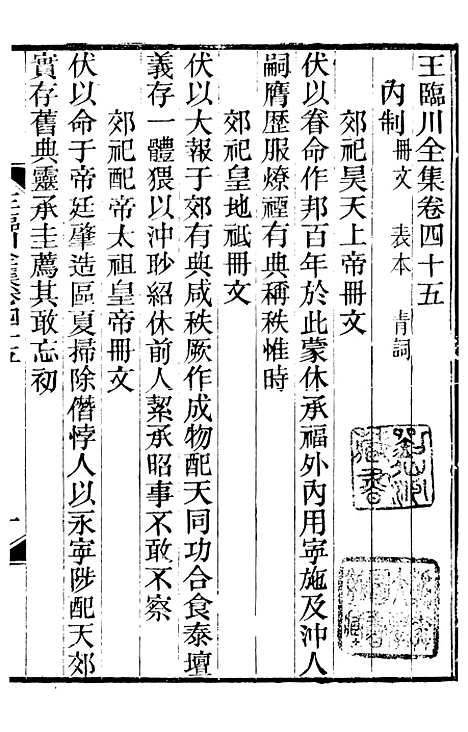 王臨川全集卷四十五
內制 冊文 表本 青詞
郊祀昊天上帝冊文
伏以眷命作邦百年於此蒙休承福外內用寧施及沖人
嗣膺歷服燎禋有典稱秩惟時
郊祀皇地祇冊文
伏以大報于郊有典咸秩厥作成物配天同功合食泰壇
義存一體猥以沖眇紹休前人絜承昭事不敢不察
郊祀配帝太祖皇帝冊文
伏以命于帝廷肇造區夏掃除僭悖人以永寧陟配天郊
實存舊典靈承圭薦其敢忘初